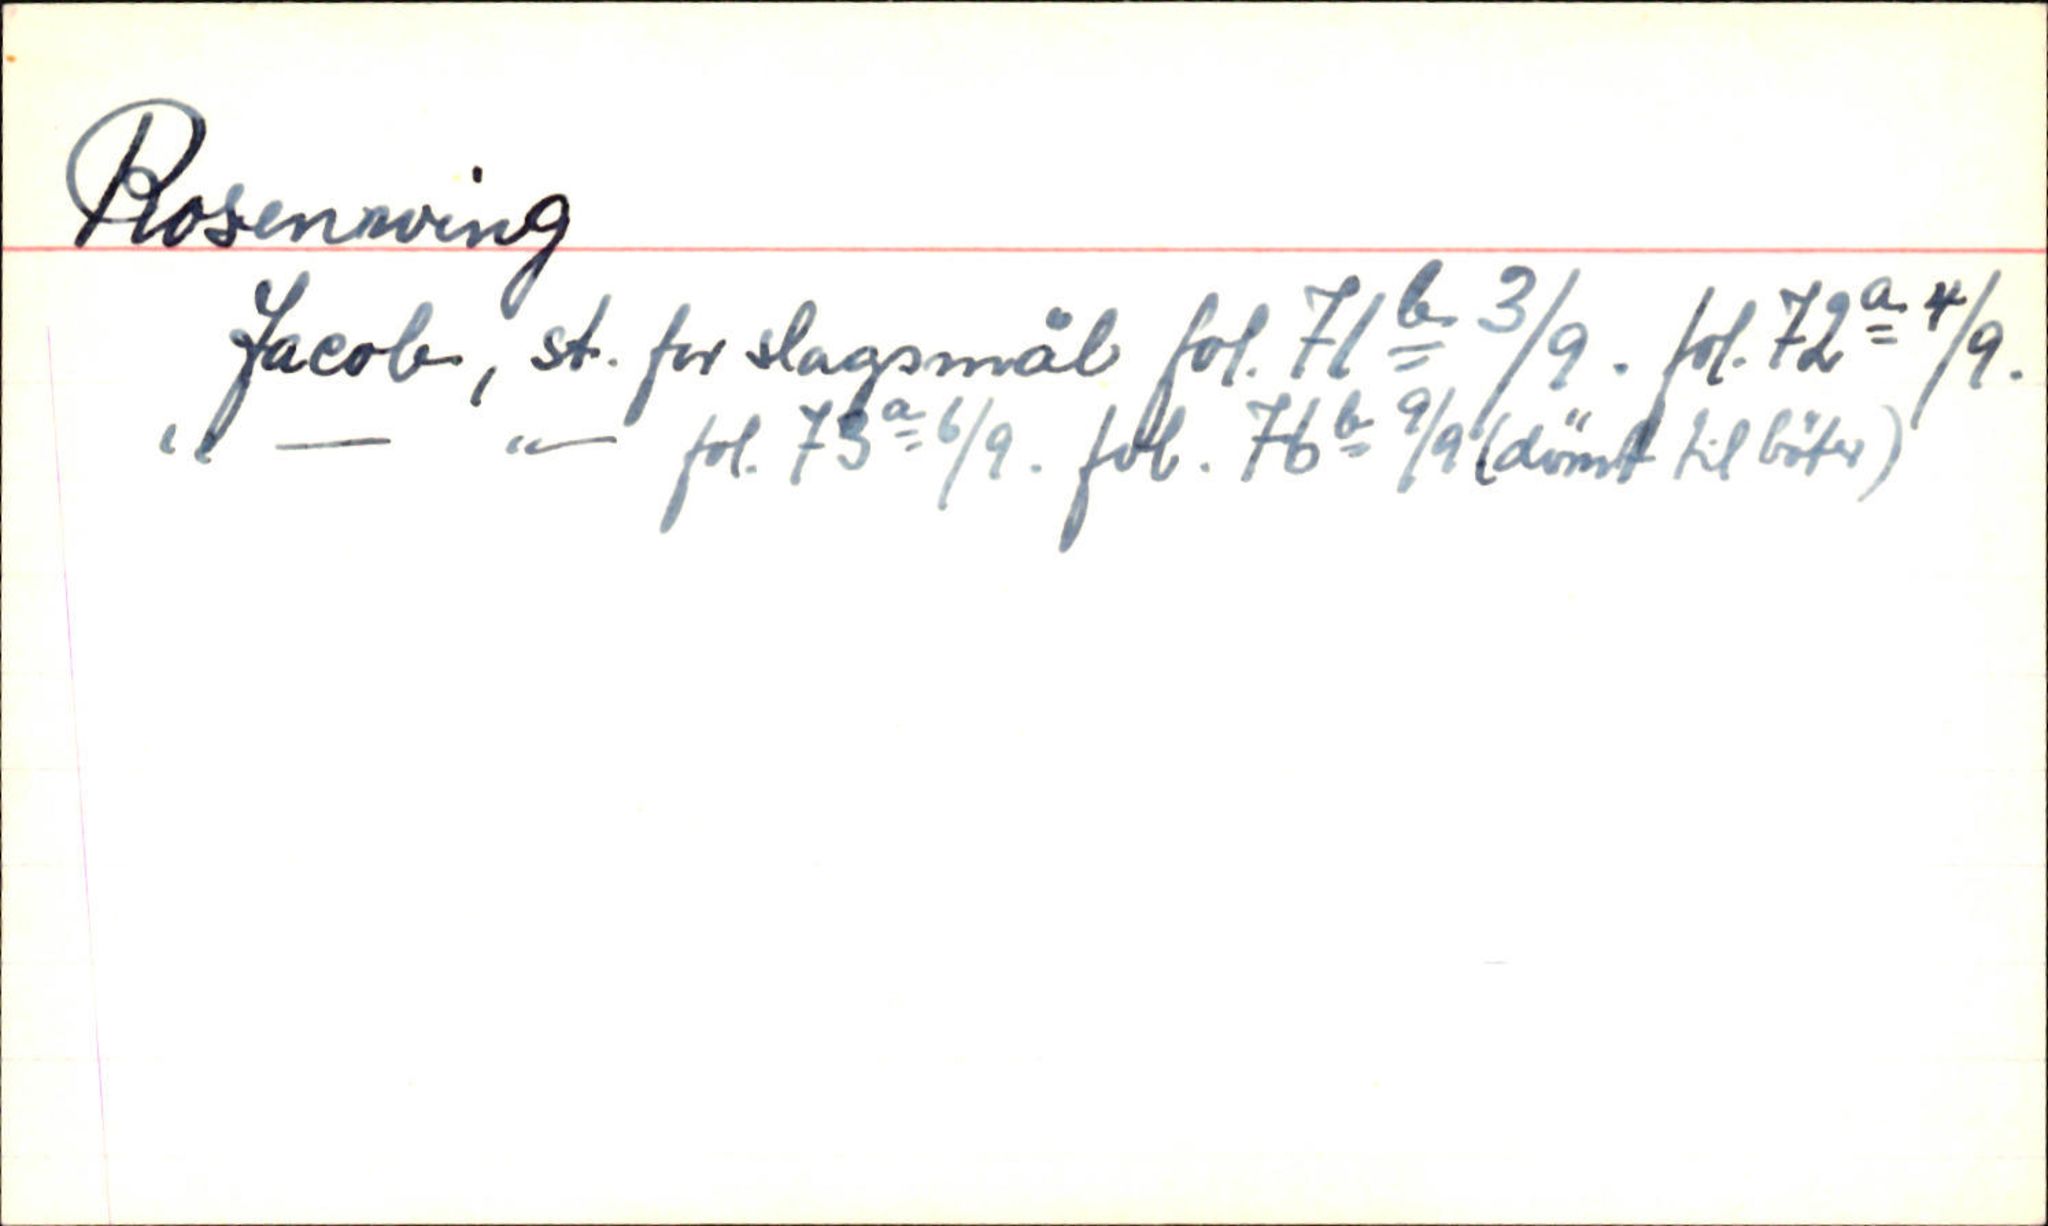 Rosenwing
Jacob, st. for slagsmål fol. 71b 3/9. fol. 72a 4/9.
" — " — fol. 73a 6/9. fol. 76b 9/9 (dömt til böter)